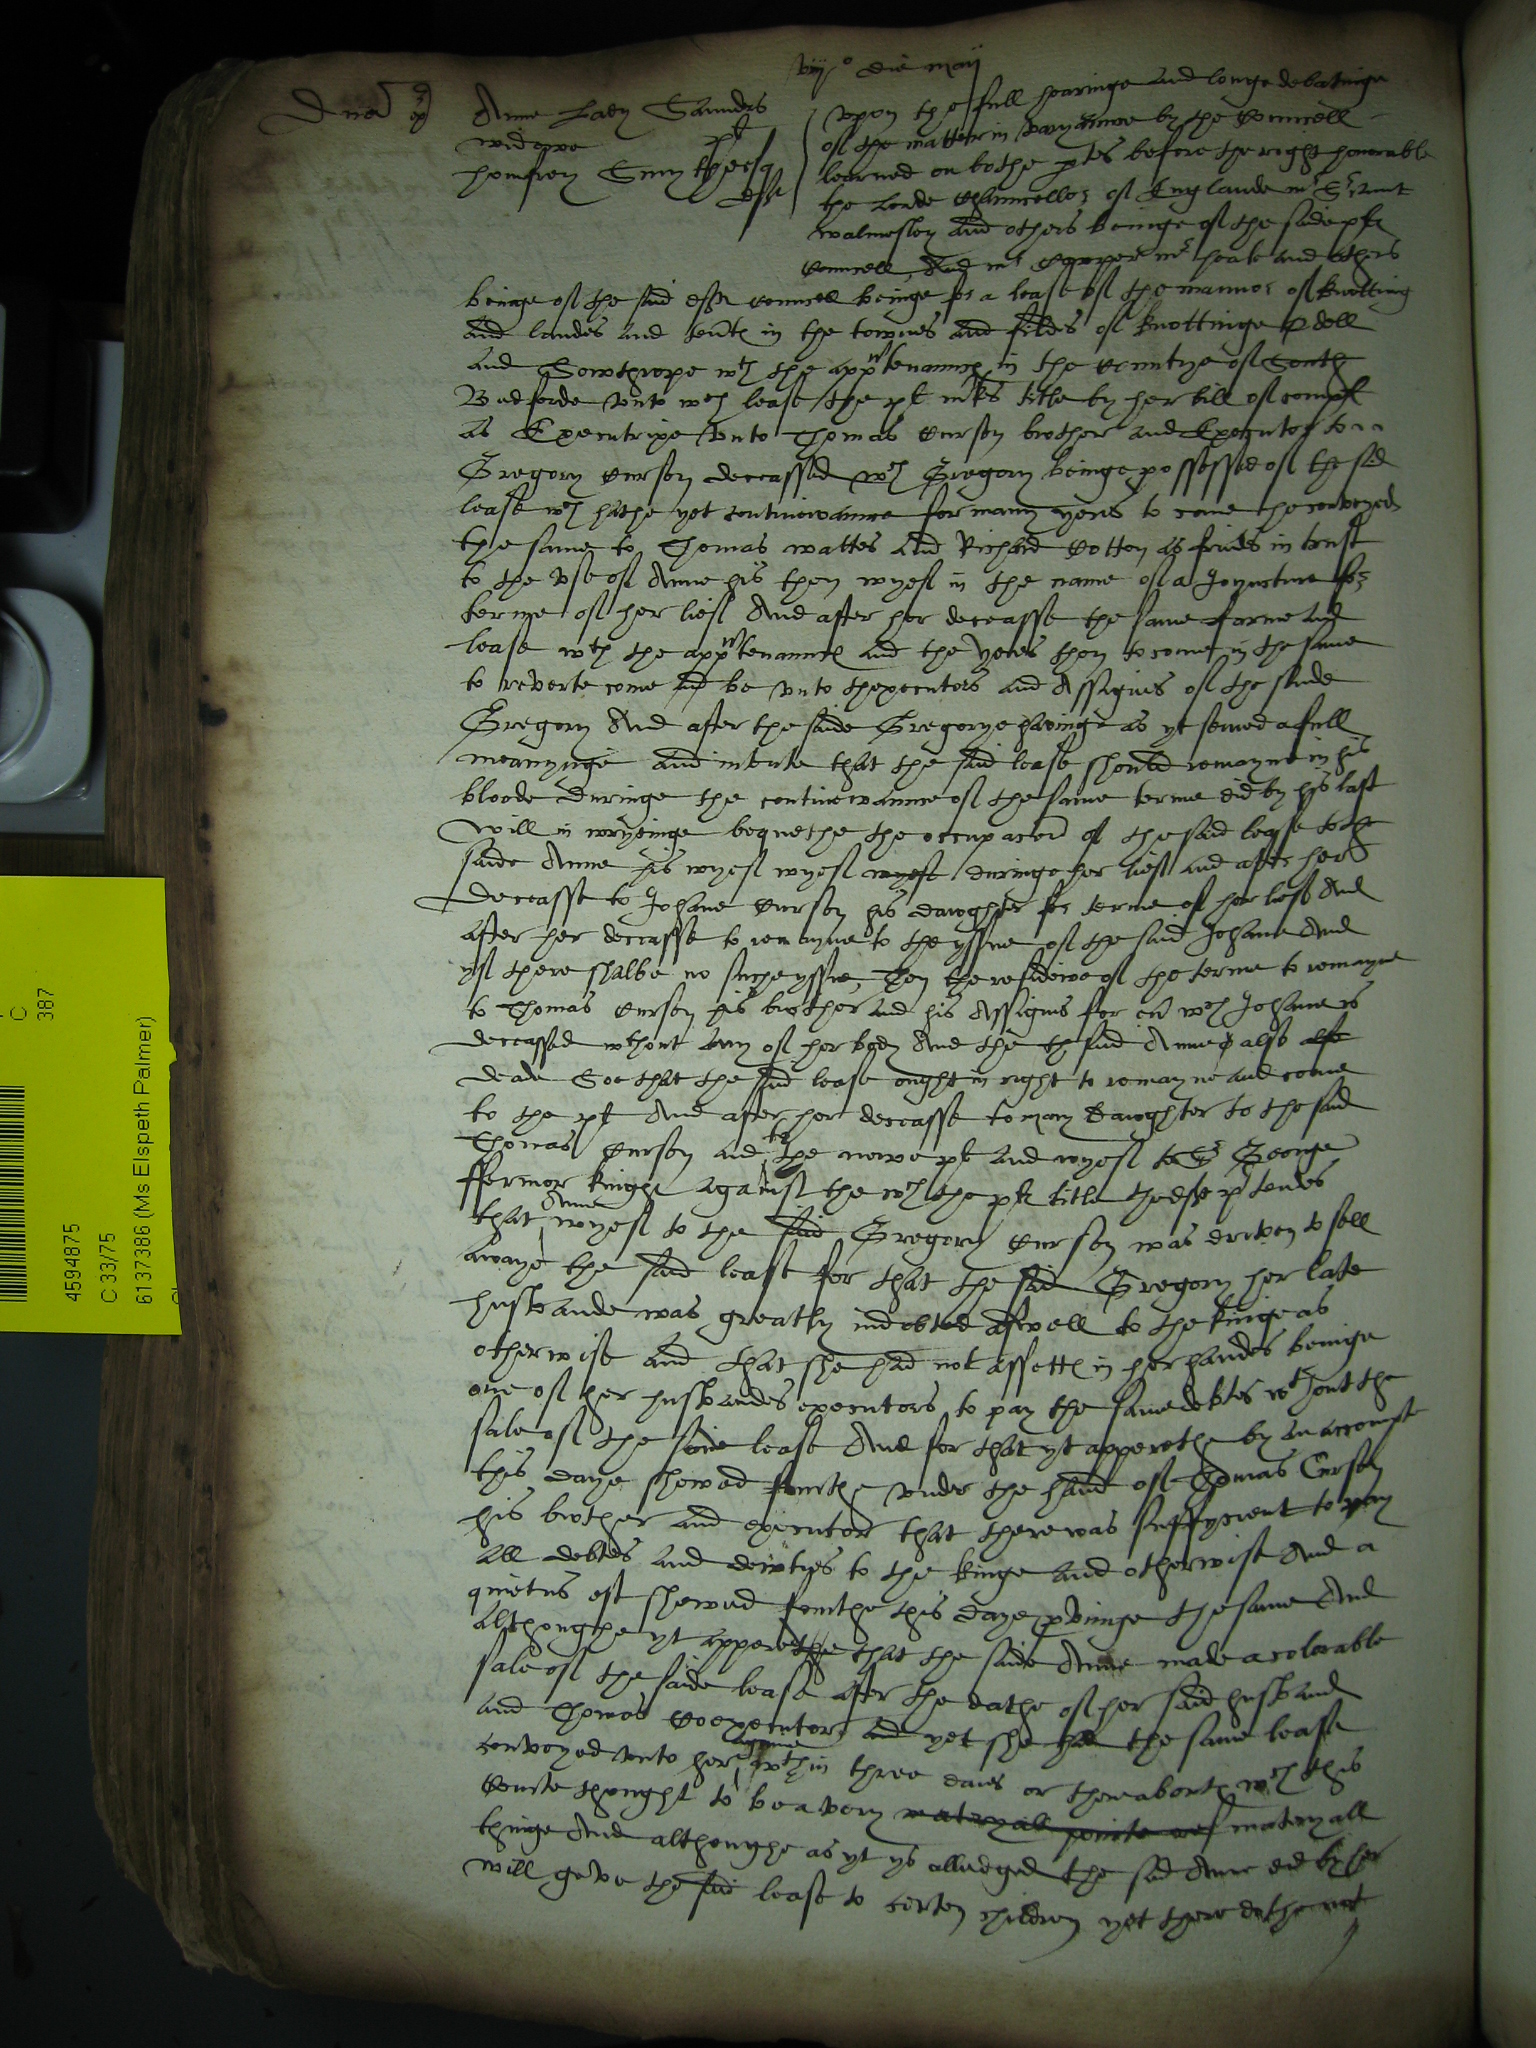 viij° die maij
Anne Lady Saunders
widowe plt
Homfrey Smythe esq
deft
Upon the full hearinge and longe debatinge
of the matter in varyaunce by the Councell
learned on bothe ptes before the right honorable
the Lorde Chauncellor of Englande mr Sriaunt
walmesley and others beinge of the saide plts
Councell, And mr Cowper mr heale and others
beinge of the said defts Councell beinge for a lease of the mannor of knotting
and landes and tents in the townes and fildes of knottinge
and Sowthrope wth the appurtenaunces in the Countye of South
Bedforde unto wch lease the plt makes title by her bill of complt
as Executrixe unto Thomas Curson brother and Executor to
Gregory Curson deceassed wch Gregory beinge possessed of the sed
lease wch hathe yet continewaunce for many yeres to come the conveyed
the same to Thomas wattes and Richard Cotton as frindes in trust
to the use of Anne his then wyef in the name of a Joyncture for
terme of her lief And after her deceasse the same farme and
lease wth the appurtenaunces and the yeres then to come in the same
to reverte come and be unto thexecutors and Assignes of the saide
Gregory And after the saide Gregorye havinge as yt semed a full
meanynge and intente that the said lease should remayne in his
bloode duringe the continewaunce of the same terme did by his last
will in wrytinge bequethe the occupacion of the said lease to the
saide Anne his wyef wyef wyef duringe her lief and after her
deceasse to Johane Curson his dawghter for terme of her lief And
after her deceasse to remayne to the yssue of the said Johane And
yf there shalbe no suche yssue, Then the residewe of the terme to remayne
to Thomas Curson his brother and his Assignes for ev wch Johane is
deceassed wthout any of her body And the the said Anne is also also
deade Soe that the said lease ought in right to remayne and come
to the plt And after her deceasse to mary dawghter to the said
Thomas Curson and to the nowe plt and wyef to Sr George
ffermor knight against the wch the plts title the deft ptendes
that Anne wyef to the said Gregory Curson was driven to sell
awaye the said lease for that the said Gregory her late
husbande was greatly indebted aswell to the kinge as
otherwise and that she had not assetts in her handes beinge
one of her husbandes executors to pay the same debtes wthout the
sale of the saide lease And for that yt apperethe by an accompte
this daye shewed fourthe under the hand of Thomas Curson
his brother and executor that there was suffycient to pay
all debtes and dewtyes to the kinge and otherwise And a
quietus est shewed fourthe this daye provinge the same And
althoughe yt apperethe that the saide Anne made a colorable
sale of the saide lease after the dathe of her said husband
and Thomas Coexecutor and yet she had the same lease
conveyed unto her agane wthin three daies or thereabouts wch this
Courte thought to be a very materyall pointe materyall
thinge And althoughe as yt ys alledged the said Anne did by her
will geve the said lease to certen children yet there dothe not
4594875
C 33/75
6137386 (Ms Elspeth Palmer)
C
387